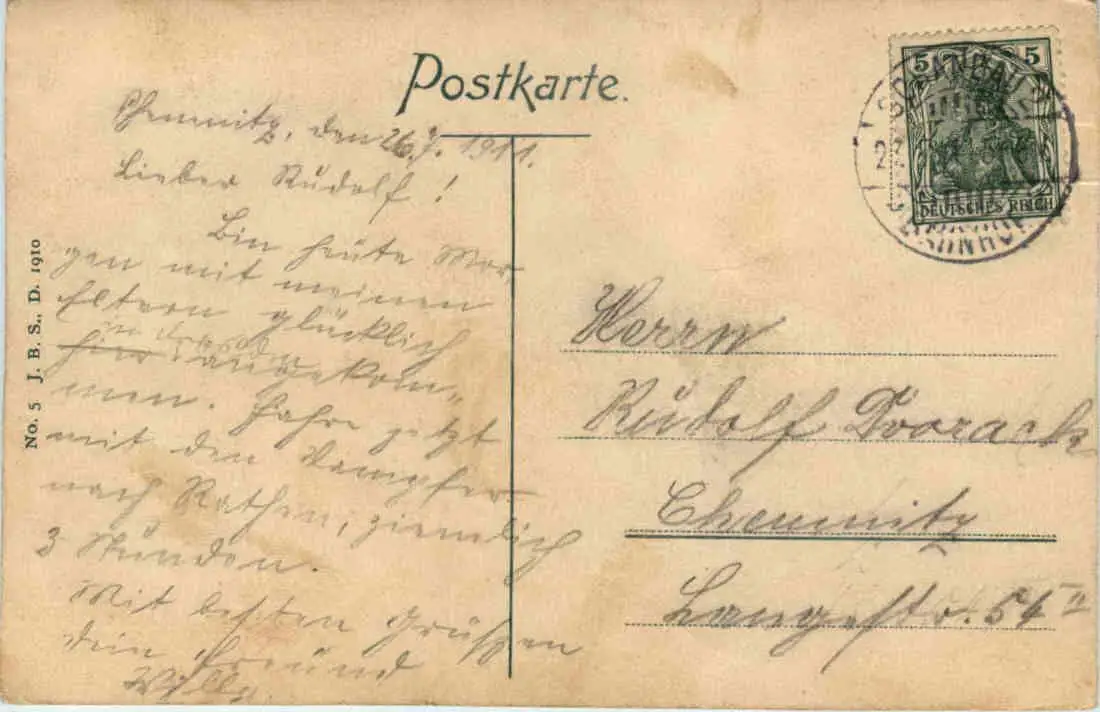 Postkarte.
5 5
DEUTSCHES REICH
SCHANDAU
BAHNHOF
No. 5 J. B. S., D. 1910
Chemnitz, den 26.7. 1911.
Lieber Rudolf!
Bin heute Mor-
gen mit meinen
Eltern glücklich
in Dresden
hier angekom-
men. Fahre jetzt
mit den Dampfer
nach Rathen, ziemlich
3 Stunden.
Mit besten Grüßen
dein Freund
Willy.
Herrn
Rudolf Dvorack
Chemnitz
Langestr. 54 II